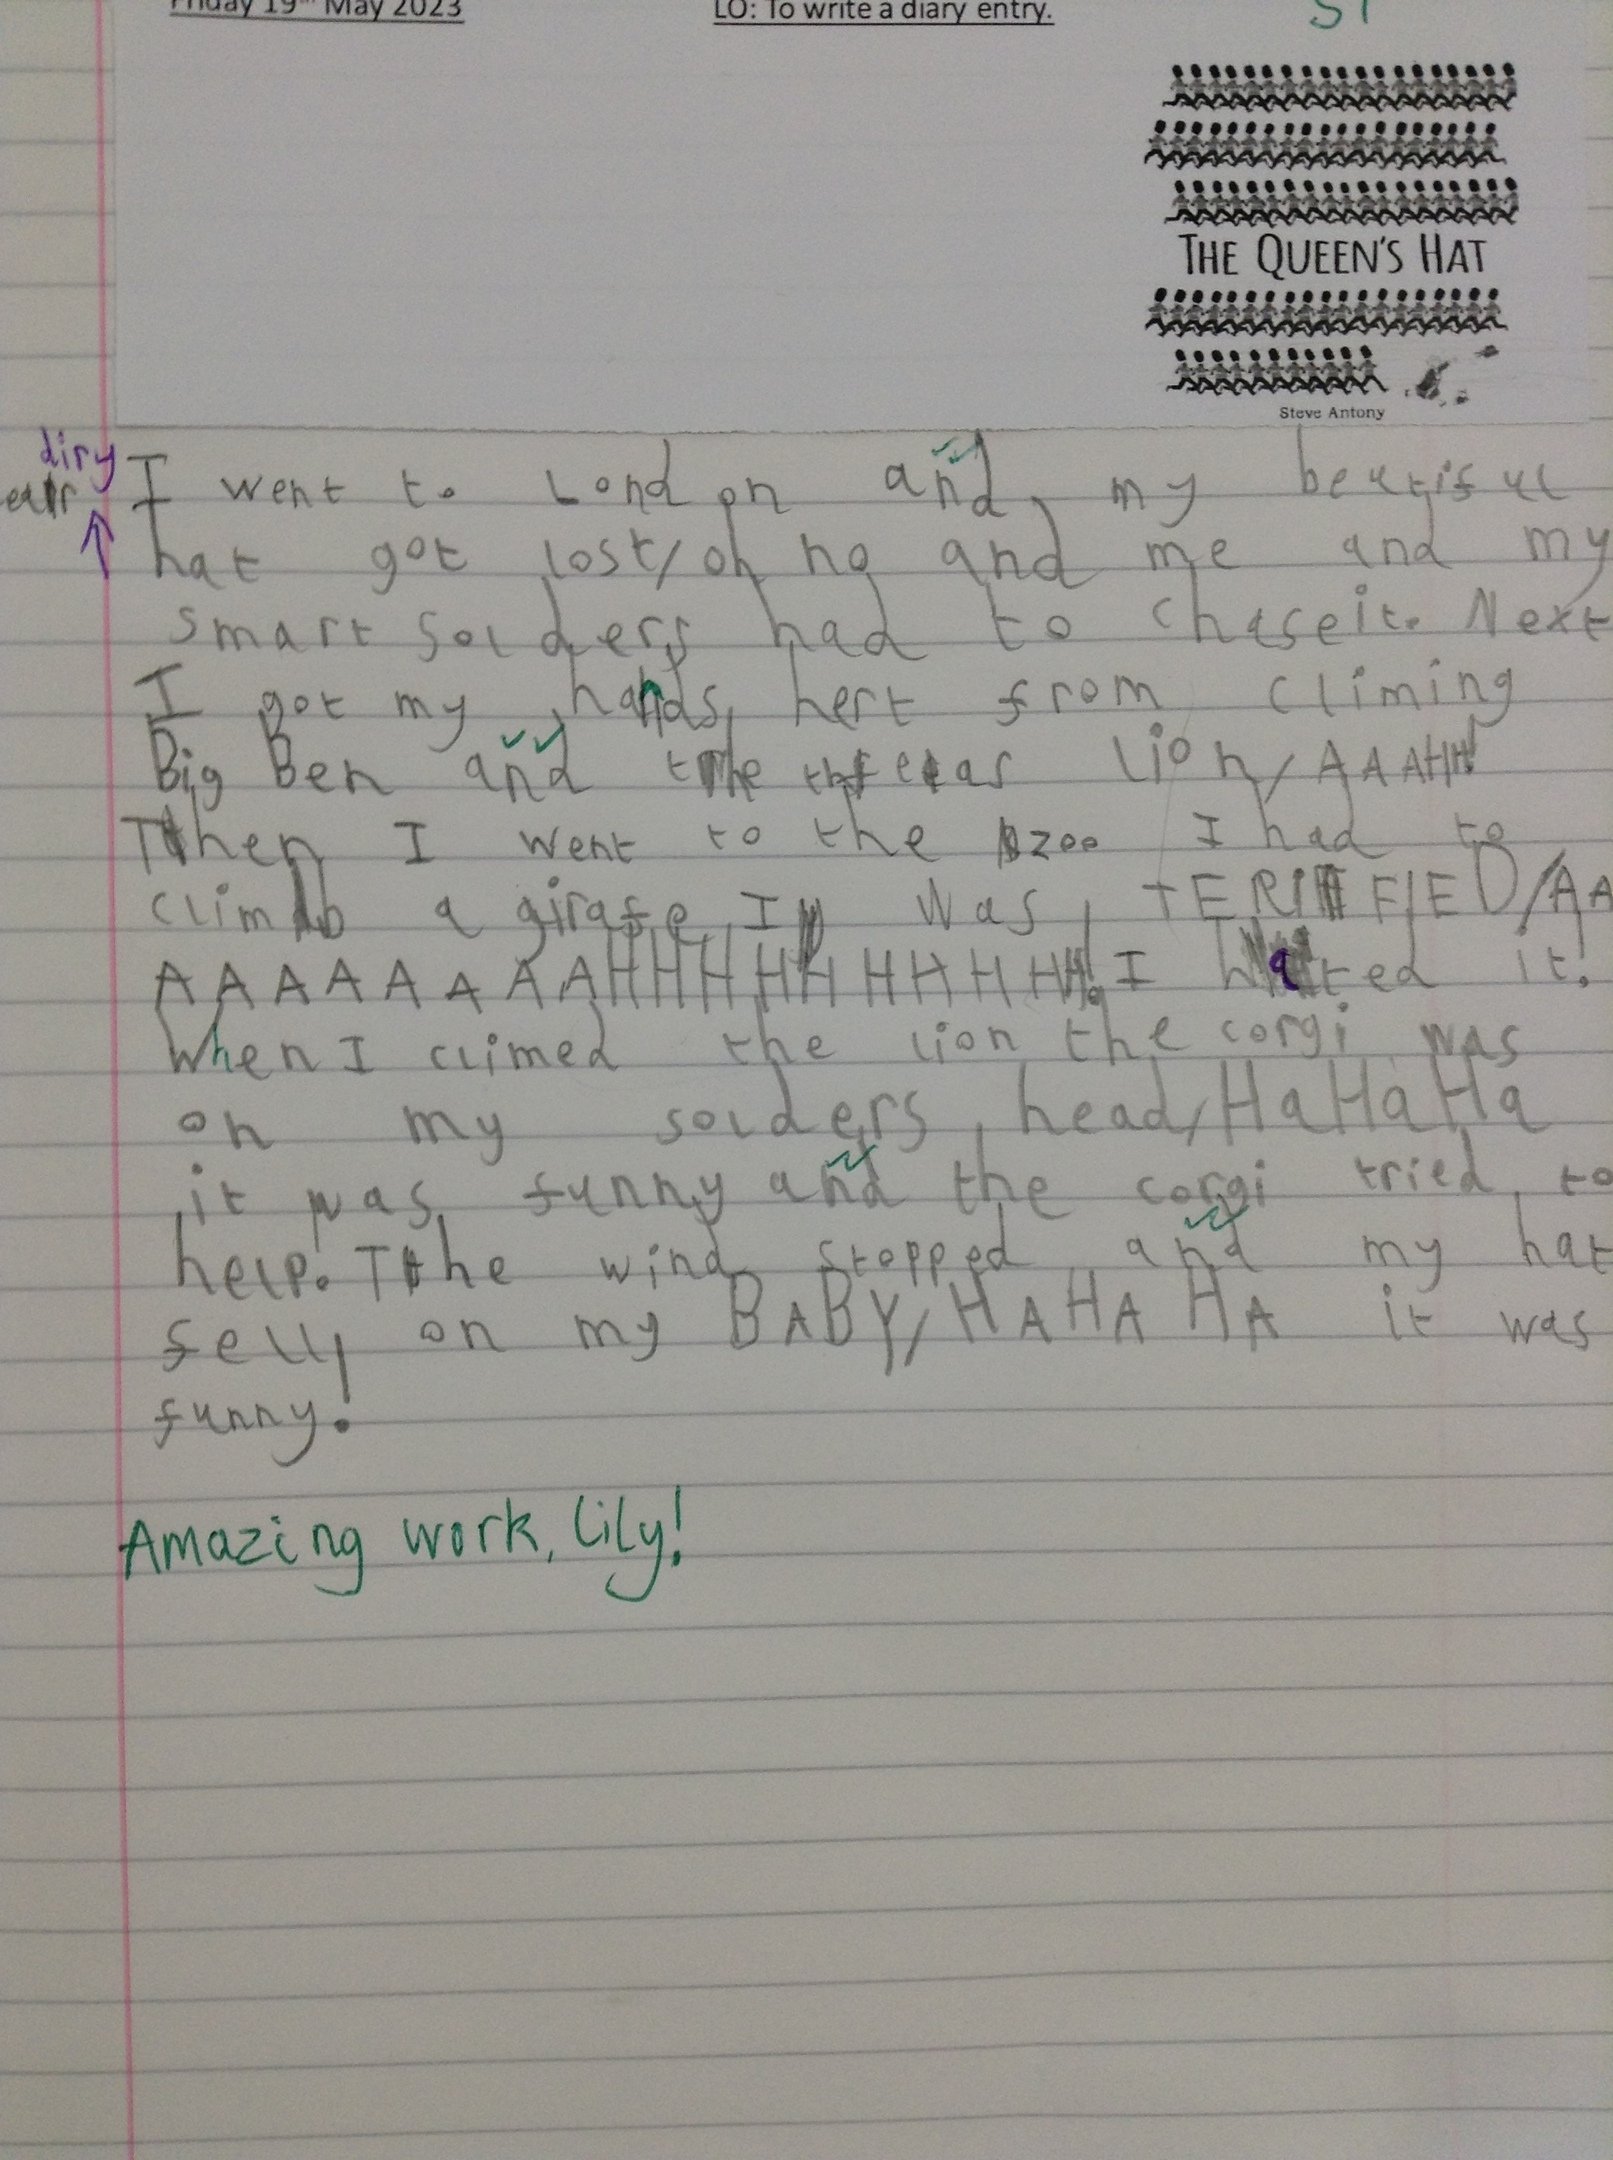 Friday 19th May 2023
LO: To write a diary entry.
SI
THE QUEEN'S HAT
Steve Antony
diry
I went to London and my beutiful
hat got lost/oh no and me and my
smart solders had to chase it. Next
I got my hands hert from climing
Big Ben and the lion/AAAHH!
Then I went to the zoo I had to
climb a girafe I was TERIFIED/AA
AAAAAAAAHHHHHHHHHH! I hated it!
When I climed the lion the corgi was
on my solders head/HaHaHa
it was funny and the corgi tried to
help. The wind stopped and my hat
fell on my BABY/HAHA HA it was
funny!
Amazing work, Lily!